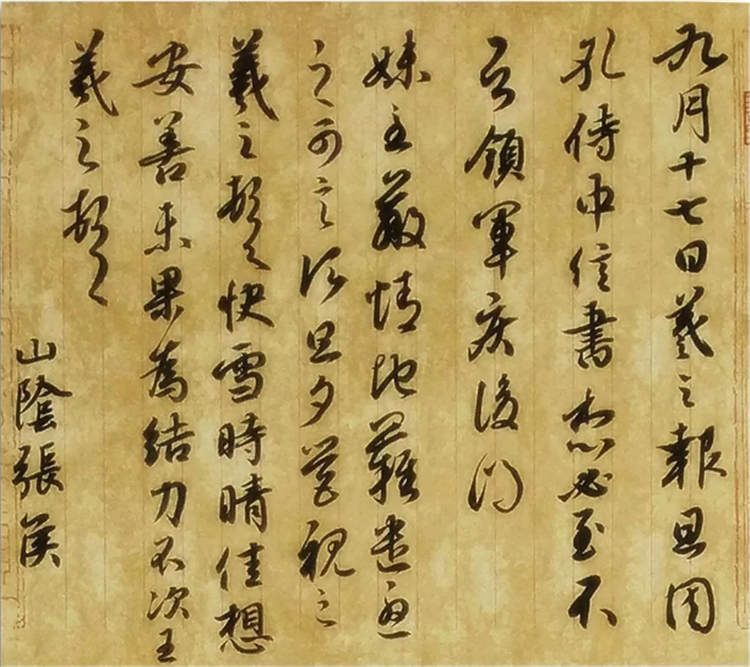 九月十七日羲之報且因
孔侍中信書想必至不
知領軍疾後問
妹至羸情地難遣憂
之可言須旦夕營視之
羲之頓首快雪時晴佳想
安善未果為結力不次王
羲之頓首
山陰張侯